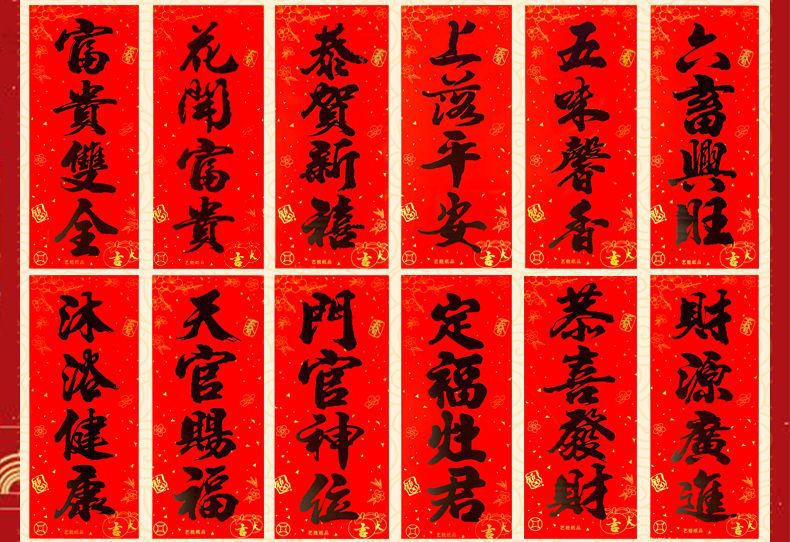 富貴雙全
花開富貴
恭賀新禧
上落平安
五味馨香
六畜興旺
沐浴健康
天官賜福
門官神位
定福灶君
恭喜發財
財源廣進